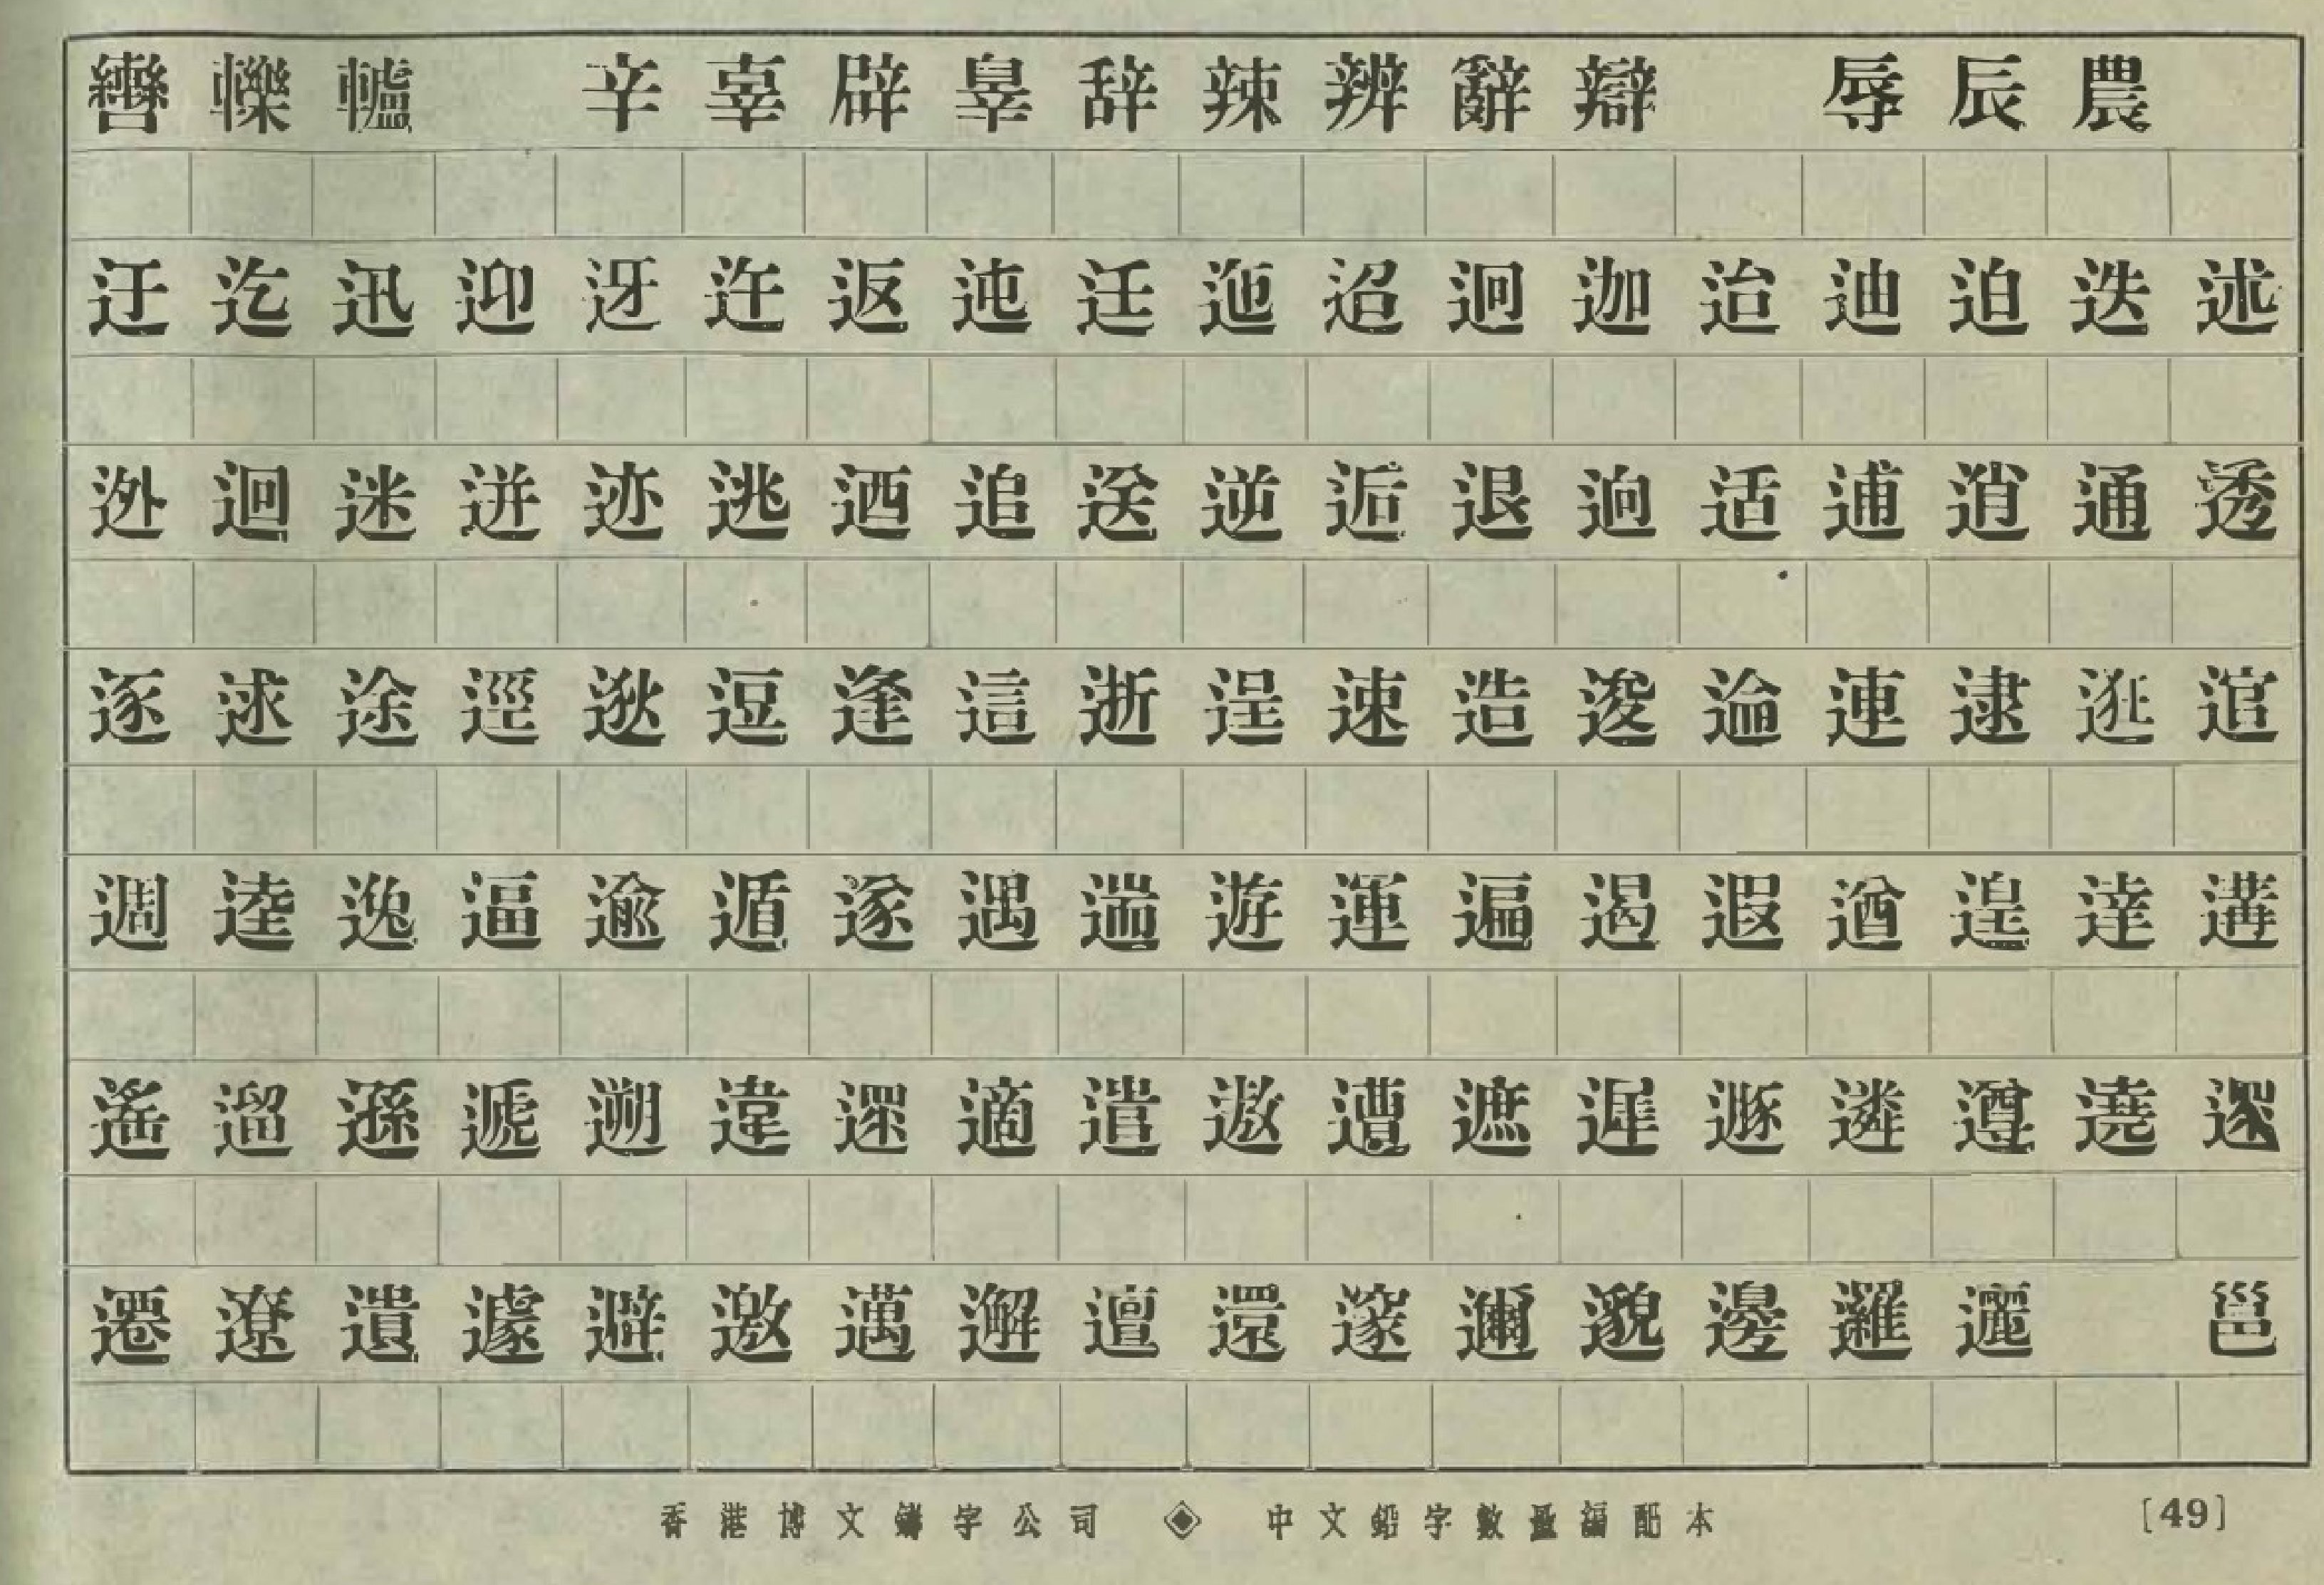 轡轢轤 辛辜辟辠辞辣辨辭辯 辱辰農
迂迄迅迎迓迕返迍迋迤迢迥迦迨迪迫迭述
迯迴迷迸迹逃迺追送逆逅退逈适逋逍通透
逐逑途逕逖逗逢這逝逞速造逡逾連逮逛逭
週逵逸逼逾遁遂遇遄遊運遍遏遐遒遑達遘
遙遛遜遞遡違遝適遣遨遭遮遲遯遴遵遶還
遷遼遺遽避邀邁邂邅還邃邇邈邊邏邐 邕
香港博文鑄字公司 ◈ 中文鉛字數量編配本 [49]